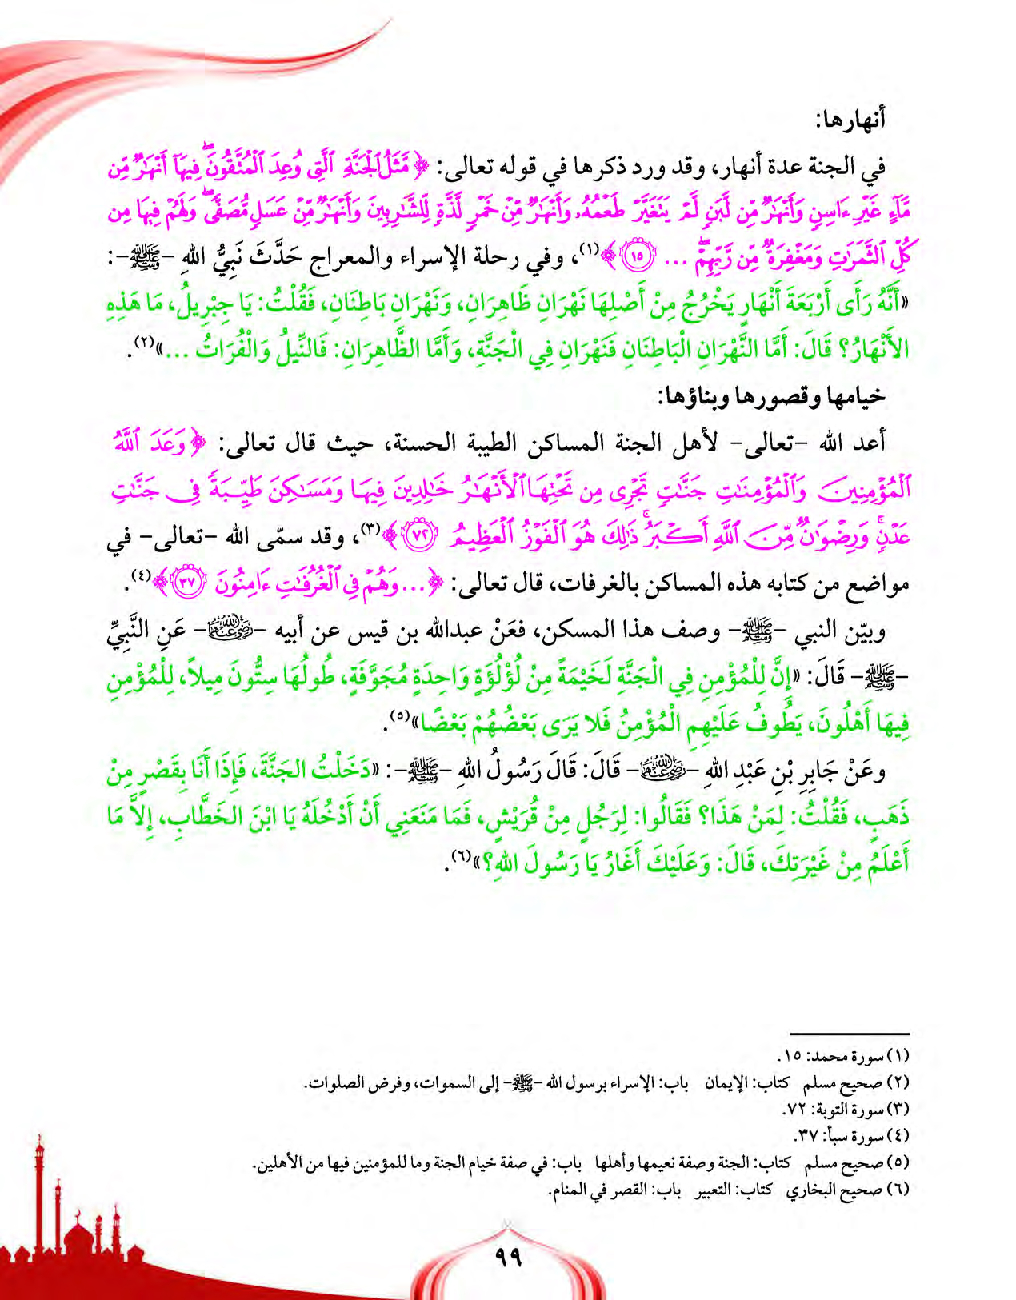 أنهارها:
في الجنة عدة أنهار، وقد ورد ذكرها في قوله تعالى: ﴿مَّثَلُ ٱلۡجَنَّةِ ٱلَّتِي وُعِدَ ٱلۡمُتَّقُونَۖ فِيهَآ أَنۡهَٰرٞ مِّن
مَّآءٍ غَيۡرِ ءَاسِنٖ وَأَنۡهَٰرٞ مِّن لَّبَنٖ لَّمۡ يَتَغَيَّرۡ طَعۡمُهُۥ وَأَنۡهَٰرٞ مِّنۡ خَمۡرٖ لَّذَّةٖ لِّلشَّٰرِبِينَ وَأَنۡهَٰرٞ مِّنۡ عَسَلٖ مُّصَفّٗىۖ وَلَهُمۡ فِيهَا مِن
كُلِّ ٱلثَّمَرَٰتِ وَمَغۡفِرَةٞ مِّن رَّبِّهِمۡۖ ... ١٥﴾(١)، وفي رحلة الإسراء والمعراج حَدَّثَ نَبِيُّ اللهِ -ﷺ-:
«أَنَّهُ رَأَى أَرْبَعَةَ أَنْهَارٍ يَخْرُجُ مِنْ أَصْلِهَا نَهْرَانِ ظَاهِرَانِ، وَنَهْرَانِ بَاطِنَانِ، فَقُلْتُ: يَا جِبْرِيلُ، مَا هَذِهِ
الأَنْهَارُ؟ قَالَ: أَمَّا النَّهْرَانِ الْبَاطِنَانِ فَنَهْرَانِ فِي الْجَنَّةِ، وَأَمَّا الظَّاهِرَانِ: فَالنِّيلُ وَالْفُرَاتُ ...»(٢).
خيامها وقصورها وبناؤها:
أعد الله -تعالى- لأهل الجنة المساكن الطيبة الحسنة، حيث قال تعالى: ﴿وَعَدَ ٱللَّهُ
ٱلۡمُؤۡمِنِينَ وَٱلۡمُؤۡمِنَٰتِ جَنَّٰتٖ تَجۡرِي مِن تَحۡتِهَا ٱلۡأَنۡهَٰرُ خَٰلِدِينَ فِيهَا وَمَسَٰكِنَ طَيِّبَةٗ فِي جَنَّٰتِ
عَدۡنٖۚ وَرِضۡوَٰنٞ مِّنَ ٱللَّهِ أَكۡبَرُۚ ذَٰلِكَ هُوَ ٱلۡفَوۡزُ ٱلۡعَظِيمُ ٧٢﴾(٣)، وقد سمّى الله -تعالى- في
مواضع من كتابه هذه المساكن بالغرفات، قال تعالى: ﴿...وَهُمۡ فِي ٱلۡغُرُفَٰتِ ءَامِنُونَ ٣٧﴾(٤).
وبيّن النبي -ﷺ- وصف هذا المسكن، فعَنْ عبدالله بن قيس عن أبيه -رضي الله عنه- عَنِ النَّبِيِّ
-ﷺ- قَالَ: «إِنَّ لِلْمُؤْمِنِ فِي الْجَنَّةِ لَخَيْمَةً مِنْ لُؤْلُؤَةٍ وَاحِدَةٍ مُجَوَّفَةٍ، طُولُهَا سِتُّونَ مِيلاً، لِلْمُؤْمِنِ
فِيهَا أَهْلُونَ، يَطُوفُ عَلَيْهِمِ الْمُؤْمِنُ فَلا يَرَى بَعْضُهُمْ بَعْضًا»(٥).
وعَنْ جَابِرِ بْنِ عَبْدِ اللهِ -رضي الله عنه- قَالَ: قَالَ رَسُولُ اللهِ -ﷺ-: «دَخَلْتُ الجَنَّةَ، فَإِذَا أَنَا بِقَصْرٍ مِنْ
ذَهَبٍ، فَقُلْتُ: لِمَنْ هَذَا؟ فَقَالُوا: لِرَجُلٍ مِنْ قُرَيْشٍ، فَمَا مَنَعَنِي أَنْ أَدْخُلَهُ يَا ابْنَ الخَطَّابِ، إِلاَّ مَا
أَعْلَمُ مِنْ غَيْرَتِكَ، قَالَ: وَعَلَيْكَ أَغَارُ يَا رَسُولَ اللهِ؟»(٦).
(١) سورة محمد: ١٥.
(٢) صحيح مسلم كتاب: الإيمان باب: الإسراء برسول الله -ﷺ- إلى السموات، وفرض الصلوات.
(٣) سورة التوبة: ٧٢.
(٤) سورة سبأ: ٣٧.
(٥) صحيح مسلم كتاب: الجنة وصفة نعيمها وأهلها باب: في صفة خيام الجنة وما للمؤمنين فيها من الأهلين.
(٦) صحيح البخاري كتاب: التعبير باب: القصر في المنام.
٩٩